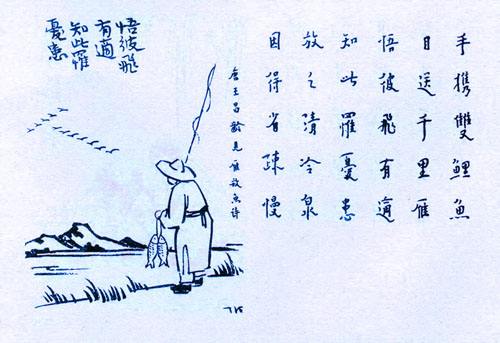 手携雙鯉魚
目送千里雁
悟彼飛有適
知此羅憂患
放之清冷泉
因得省疎慢
唐王昌齡見雁放魚詩
悟彼飛
有適
知此羅
憂患